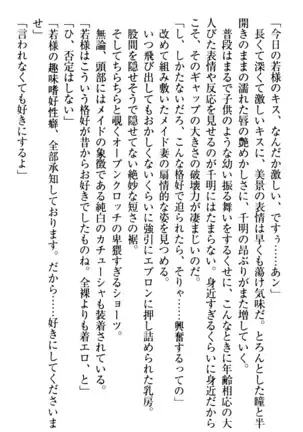 「今日の若様のキス、なんだか激しい、ですぅ……あン」
長くて深くて激しいキスに、美景の表情は早くも蕩け気味だ。とろんとした瞳と半
開きのままの濡れた唇の艶めかしさに、千明の昂ぶりがまた増していく。
普段はまるで子供のような幼い振る舞いをするくせに、こんなときに年齢相応の大
人びた表情や反応を見せるのが千明にはたまらない。身近すぎるくらいに身近だから
こそ、そのギャップの大きさの破壊力が凄まじいのだ。
「し、しかたないだろ、こんな格好で迫られたら、そりゃ……興奮するっての」
改めて組み敷いたメイド妻の扇情的な姿を見つめる。
いつ飛び出してもおかしくないくらいに強引にエプロンに押し詰められた乳房。
股間を隠せそうで隠せてない絶妙な短さの裾。
そしてちらちらと覗くオープンクロッチの卑猥すぎるショーツ。
無論、頭部にはメイドの象徴である純白のカチューシャも装着されている。
「若様はこういう格好が昔からお好きでしたものね。全裸よりも着エロ、と」
「ひ、否定はしない」
「若様の趣味嗜好性癖、全部承知しております。だから……好きにしてくださいま
せ」
「言われなくても好きにするよ」